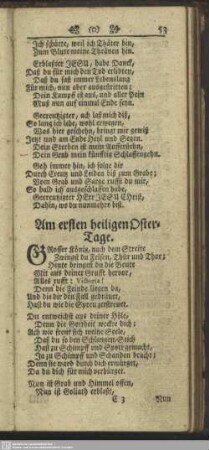 (o) 53
Ich schütte, weil ich Thäter bin,
Zum Blute meine Thränen hin.
Erblaßter JESU, habe Danck,
Daß du für mich den Tod erlidten,
Daß du fast immer Lebenslang
Für mich, nun aber ausgestritten:
Dein Kampff ist aus, und aller Pein
Muß nun auf einmal Ende seyn.
Gecreutzigter, ach laß mich diß,
So lang ich lebe, wohl erwegen,
Was hier geschehn, bringt mir gewiß
Jetzt und am Ende Heil und Segen.
Dein Sterben ist mein Auferstehn,
Dein Grab mein künfftig Schlaffengehn.
Geh immer hin, ich folge dir
Durch Creutz und Leiden biß zum Grabe;
Vom Grab und Sarge ruffst du mir,
So bald ich ausgeschlaffen habe,
Gecreutzigter HErr JESU Christ,
Dahin, wo du nunmehro bist.
Am ersten heiligen Oster-
Tage.
GRosser König, nach dem Streite
Zwingst du Felsen, Thür und Thor;
Heute bringest du die Beute
Mit aus deiner Grufft hervor,
Alles rufft: Victoria!
Denn die Feinde liegen da,
Und die dir den Fall gedräuet,
Hast du wie die Spreu zerstreuet.
Du entweichst aus deiner Höle,
Denn die Gottheit wecket dich:
Ach wie freut sich meine Seele,
Daß du so den Schlangen-Stich
Hast zu Schimpff und Spott gemacht,
Ja zu Schimpff und Schanden bracht;
Denn sie ward durch dich erwürget,
Da du dich für mich verbürget.
Nun ist Grab und Himmel offen,
Nun ist Goliath erblaßt,
E 3 Nun